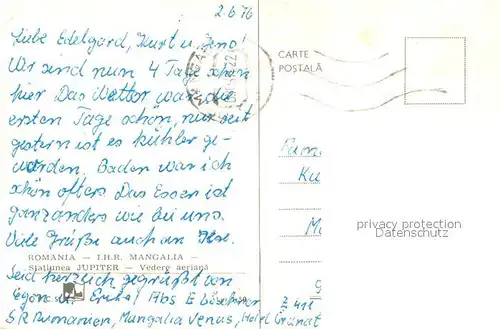 2.6.76
Liebe Edelgard, Kurt u. Jeno!
Wir sind nun 4 Tage schon
hier Das Wetter war die
ersten Tage schön, nur seit
gestern ist es kühler ge-
worden. Baden war ich
schön öfters Das Essen ist
ganz anders wie bei uns.
Viele Grüße auch an
ROMANIA – I.H.R. MANGALIA –
Stațiunea JUPITER – Vedere aeriană
Seid herzlich gegrüßt von
Egon u. Erika! Abs E
S R Rumänien, Mangalia Venus, Hotel Granat
Z 411
CARTE
POȘTALĂ
Fam
Ku
M
privacy protection
Datenschutz